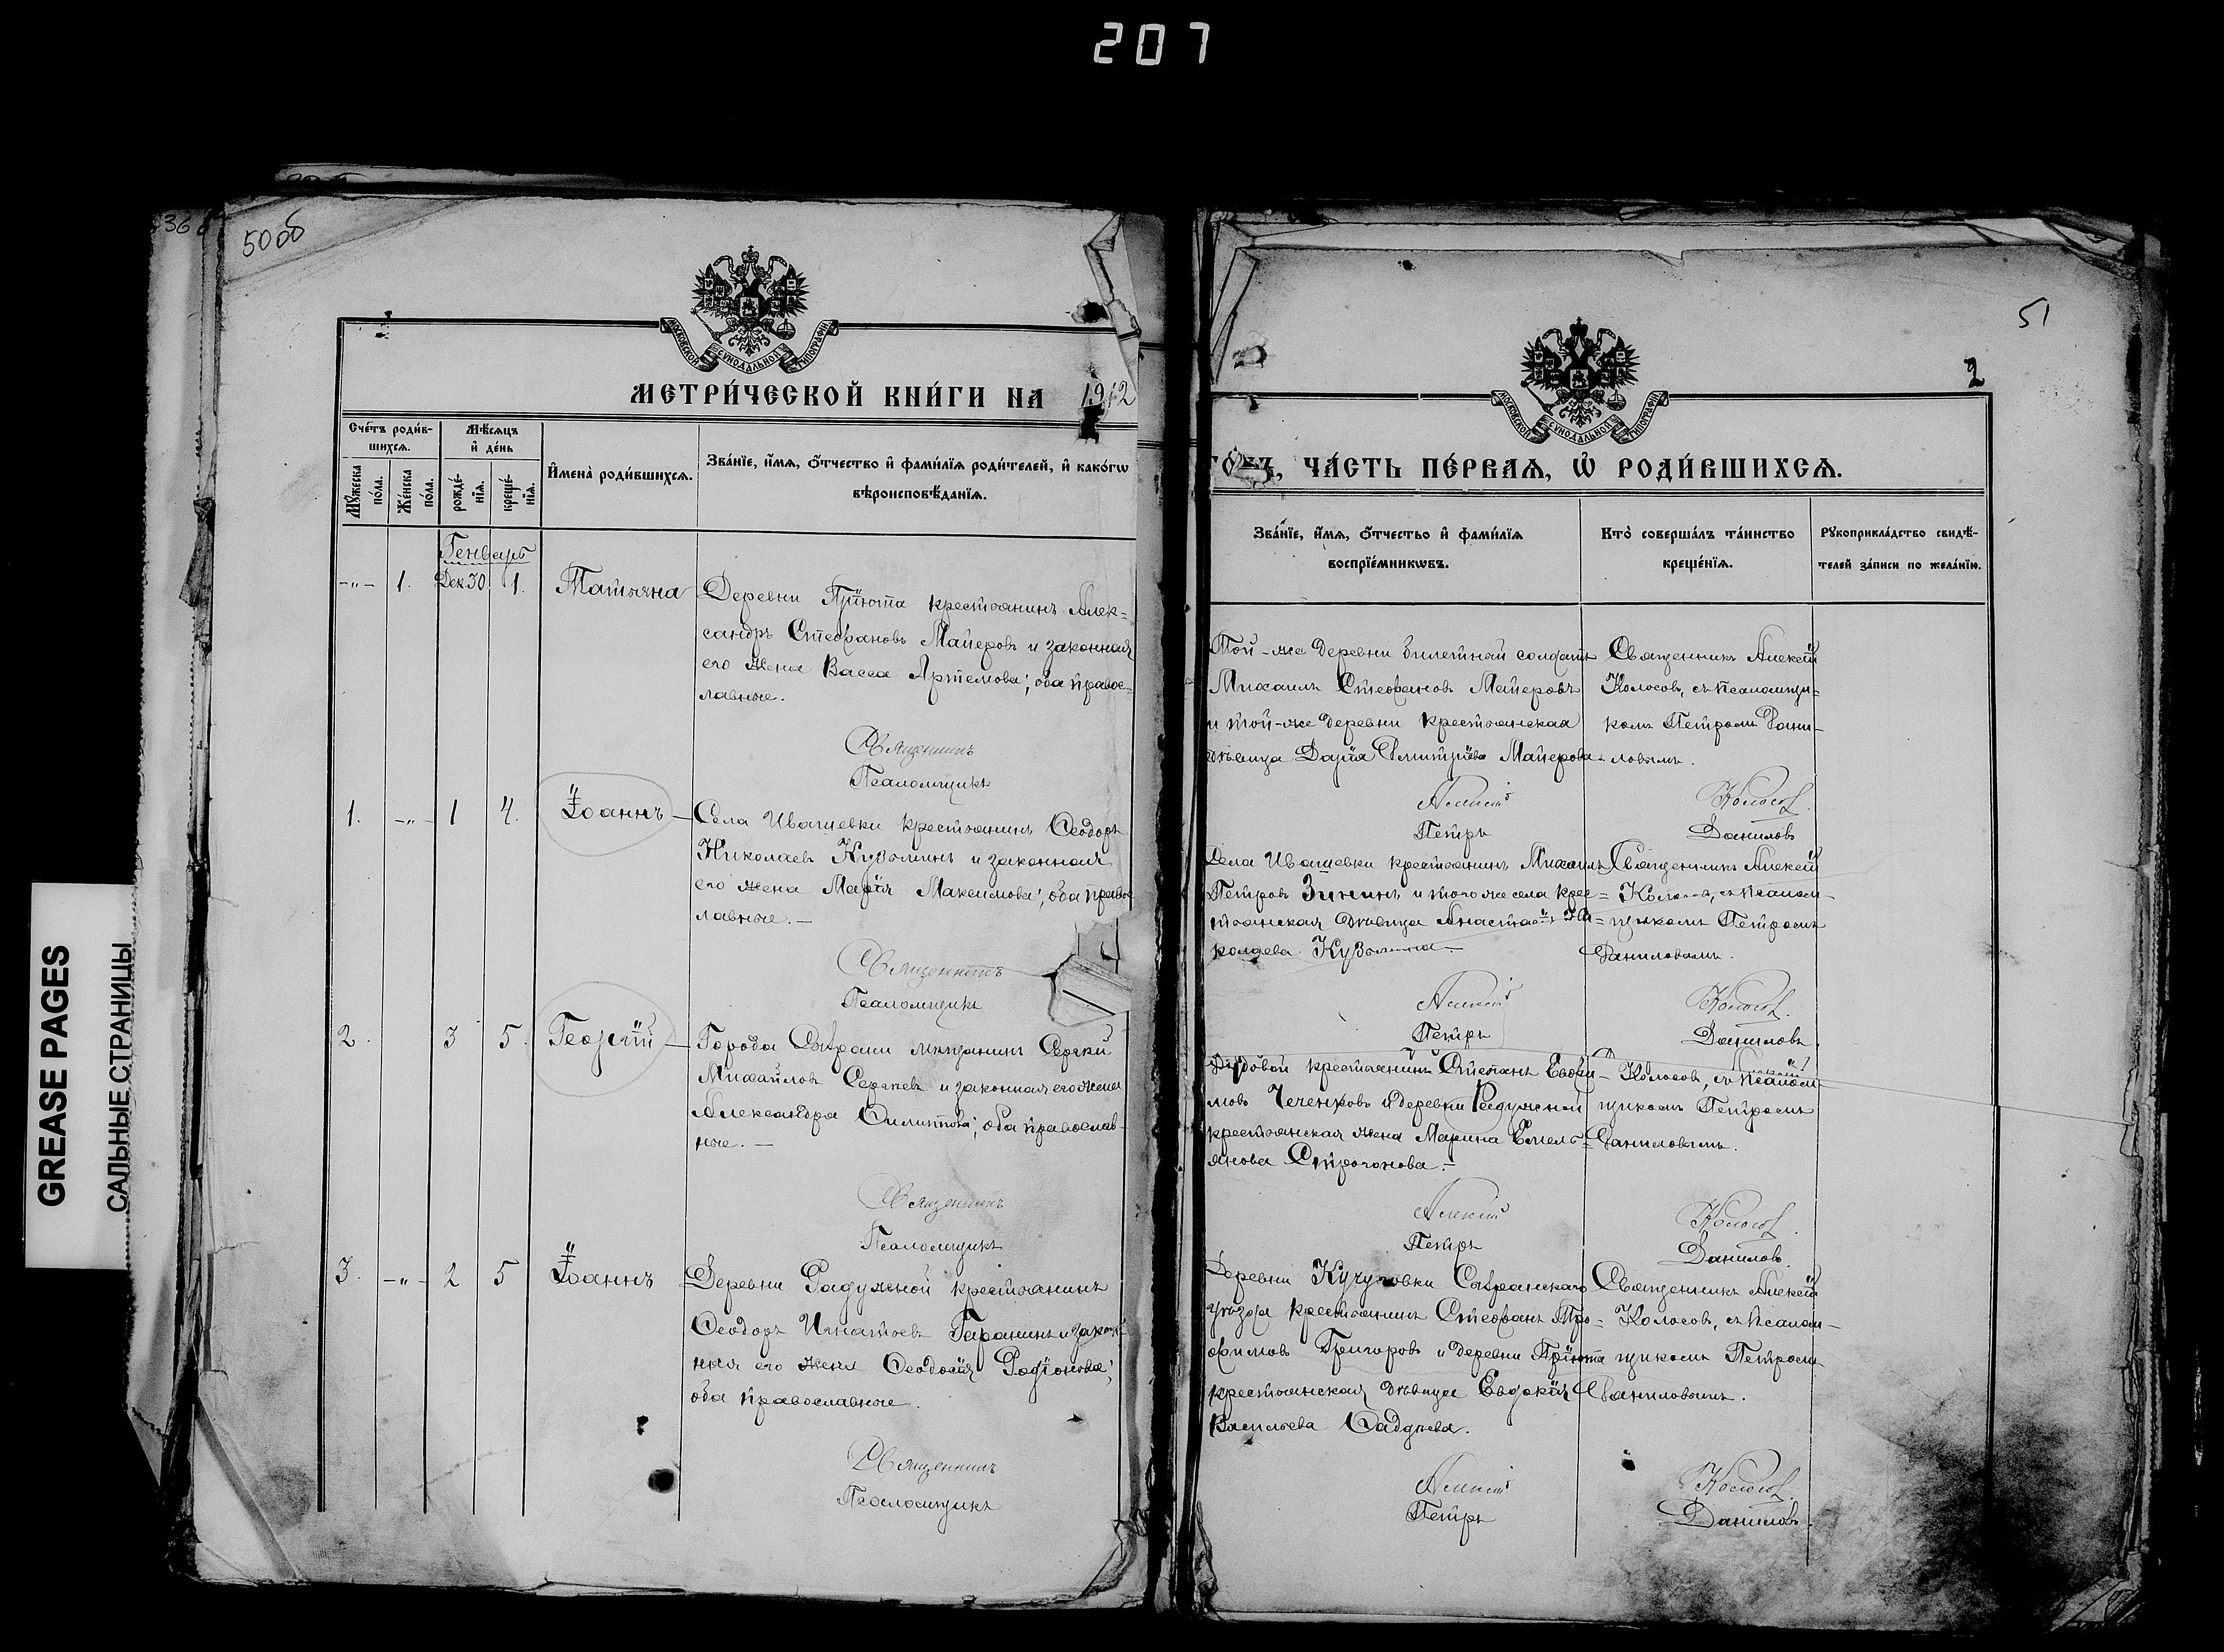 207
36
50об
51
2
GREASE PAGES
САЛЬНЫЕ СТРАНИЦЫ
МОСКОВСКОЙ СѴНОДАЛЬНОЙ ТИПОГРАФІИ
МЕТРИ́ЧЕСКОЙ КНИ́ГИ НА 1912
Сче́тъ роди́в-
шихсѧ.
Мꙋ́жеска
по́ла.
Же́нска
по́ла.
Мѣ́сѧцъ
и҆ де́нь
рожде́-
нїѧ.
креще́-
нїѧ.
И҆мена̀ роди́вшихсѧ.
Зва́нїе, и҆́мѧ, ѻ҆́тчество и҆ фами́лїѧ роди́телей, и҆ како́гѡ
вѣроисповѣ́данїѧ.
Генварь
-"- 1. Дек.30 1. Татьяна
Деревни Пріюта крестьянинъ Алек-
сандръ Стефановъ Майеровъ и законная
его жена Васса Артемова; оба правос-
лавные.
Священникъ
Псаломщикъ
1. -"- 1 4. Іоаннъ
Села Ивашевки крестьянинъ Ѳеодоръ
Николаевъ Кузьминъ и законная
его жена Марія Максимова; оба право
лавные. —
Священникъ
Псаломщикъ
2. 3 5. Георгій
Города Сызрани мѣщанинъ Сергій
Михайловъ Сергѣевъ и законная его жена
Александра Филиппова; оба православ-
ные. —
Священникъ
Псаломщикъ
3. -"- 2 5 Іоаннъ
Деревни Радужной крестьянинъ
Ѳеодоръ Игнатьевъ Гаранинъ и закон
ная его жена Ѳеодосія Родіонова;
оба православные.
Священникъ
Псаломщикъ
МОСКОВСКОЙ СѴНОДАЛЬНОЙ ТИПОГРАФІИ
ГО́ДЪ, ЧА́СТЬ ПЕ́РВАѦ, Ѡ҆ РОДИ́ВШИХСѦ.
Зва́нїе, и҆́мѧ, ѻ҆́тчестьо и҆ фами́лїѧ
воспрїе́мникѡвъ.
Кто̀ соверша́лъ та́инство
креще́нїѧ.
Рꙋкоприкла́дство свидѣ́-
телей за́писи по жела́нїю.
Той-же деревни билетный солдатъ
Михаилъ Стефановъ Майеровъ
и той-же деревни крестьянская
дѣвица Дарія Дмитріева Майерова
Священникъ Алексій
Колосовъ, съ псаломщи-
комъ Петромъ Дани-
ловымъ.
Алексій Колосов.
Петръ Данилов
Села Ивашевки крестьянинъ Михаилъ
Петровъ Зининъ и того же села крес-
тьянская дѣвица Анастасія Ни-
колаева Кузьмина. —
Священникъ Алексій
Колосовъ, съ псалом-
щикомъ Петромъ
Даниловымъ.
Алексій Колосов.
Петръ Данилов
крестьянинъ Стефанъ Евфи-
мовъ Чеченковъ и деревни Радужной
крестьянская жена Марина Емель-
янова Строгонова. —
Колосовъ, съ псалом-
щикомъ Петромъ
Даниловымъ.
Алексій Колосов.
Петръ Данилов.
Деревни Кучуговки Сызранскаго
уѣзда крестьянинъ Стефанъ Тро-
фимовъ Григоровъ и деревни Пріюта
крестьянская дѣвица Евдокія
Васильева Садчева.
Священникъ Алексій
Колосовъ, съ псалом-
щикомъ Петромъ
Даниловымъ.
Алексій Колосов.
Петръ Данилов.